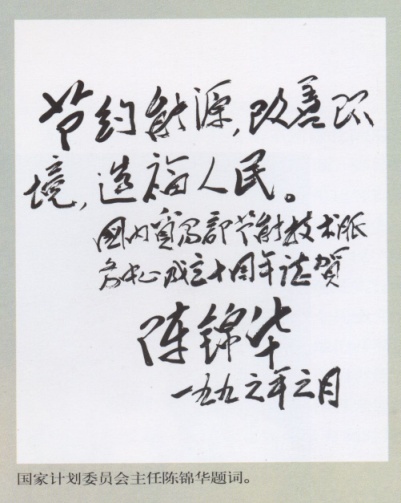 节约能源，改善环
境，造福人民。
国内贸易部节能技术服
务中心成立十周年志贺
陈锦华
一九九六年六月
国家计划委员会主任陈锦华题词。